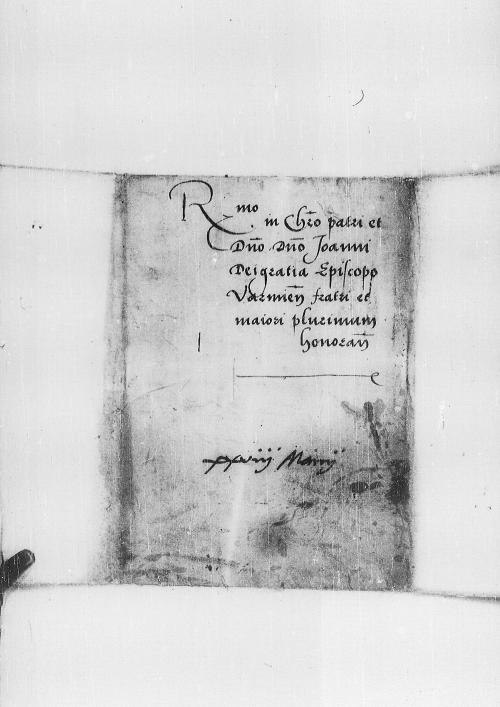 Rmo
in Chro patri et
Dno Dno Joanni
Dei gratia Episcopo
Varmien fratri et
maiori plurimum
honoran
xxviij Maij